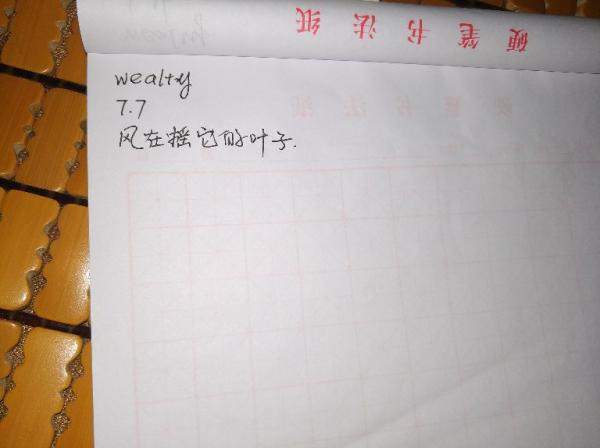 硬笔书法纸
wealty
7.7
风在摇它的叶子.